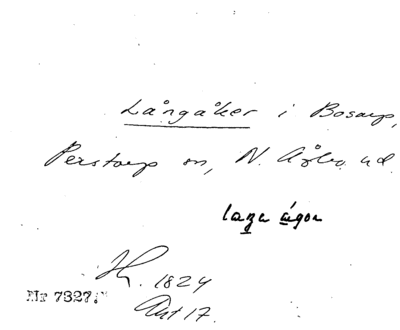 Långåker i Bosarp,
Perstorp sn, N. Åsbo hd.
laga ägor
Hr. 1824
Akt 17.
Nr 7327.